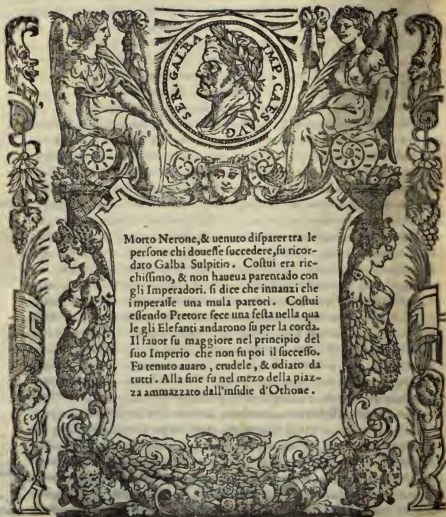 SER. GALBA IMP. CAES. AVG
Morto Nerone, & uenuto disparer tra le
persone chi douesse succedere, fu ricor-
dato Galba Sulpitio. Costui era ric-
chissimo, & non haueua parentado con
gli Imperadori. si dice che innanzi che
imperasse una mula partorì. Costui
essendo Pretore fece una festa nella qua
le gli Elefanti andarono su per la corda.
Il fauor fu maggiore nel principio del
suo Imperio che non fu poi il successo.
Fu tenuto auaro, crudele, & odiato da
tutti. Alla fine fu nel mezo della piaz-
za ammazzato dall'insidie d'Othone.